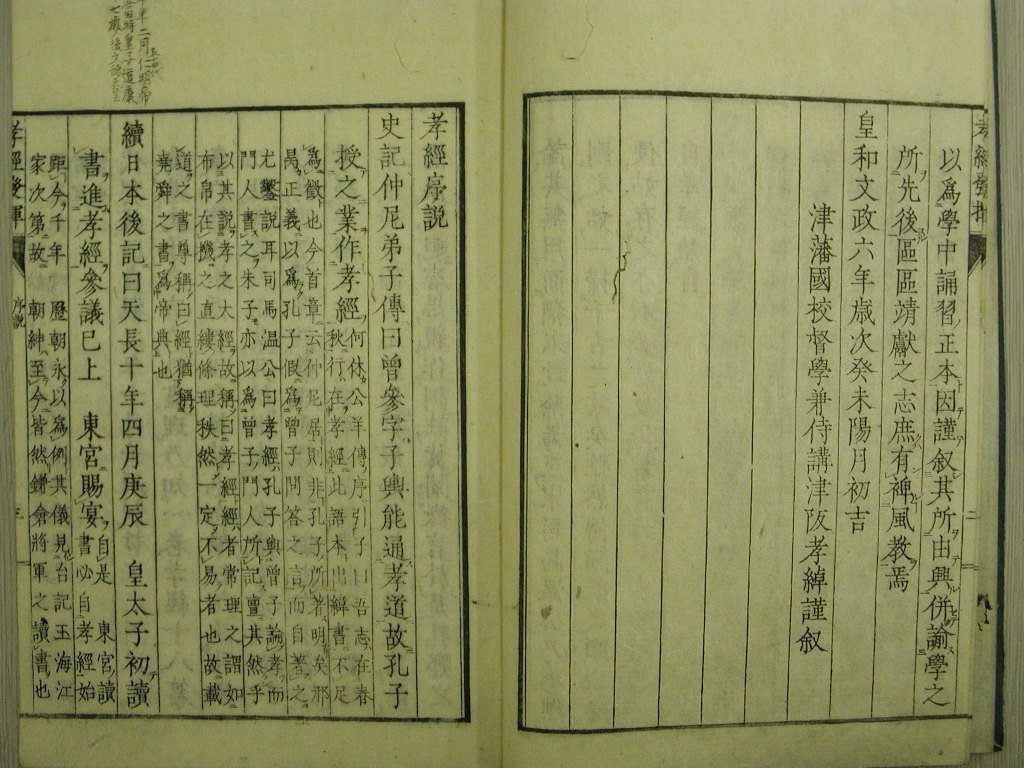 以爲學中誦習正本因謹叙其所由興併論學之
所先後區區靖獻之志庶有裨風教焉
皇和文政六年歲次癸未陽月初吉
津藩國校督學兼侍講津阪孝綽謹叙
孝經序説
史記仲尼弟子傳曰曾參字子輿能通孝道故孔子
授之業作孝經
何休公羊傳序引子曰吾志在春
秋行在孝經此語本出緯書不足
爲徵也今首章云仲尼居則非孔子所著明矣邢
昺正義以爲孔子假爲曾子問答之言而自著之
尤鑿説耳司馬温公曰孝經孔子與曾子論孝而
門人書之朱子亦以爲曾子門人所記亶其然乎
以其説孝之大經故稱曰孝經經者常理之謂如
布帛在機之直縷條理秩然一定不易者也故載
道之書尊稱曰經猶稱
堯舜之書爲帝典也
續日本後記曰天長十年四月庚辰 皇太子初讀
書進孝經參議已上 東宮賜宴
自是 東宮讀
書必自孝經始
距今千年 歷朝永以爲例其儀見台記玉海江
家次第故 朝紳至今皆然鎌倉將軍之讀書也
序説
二
三